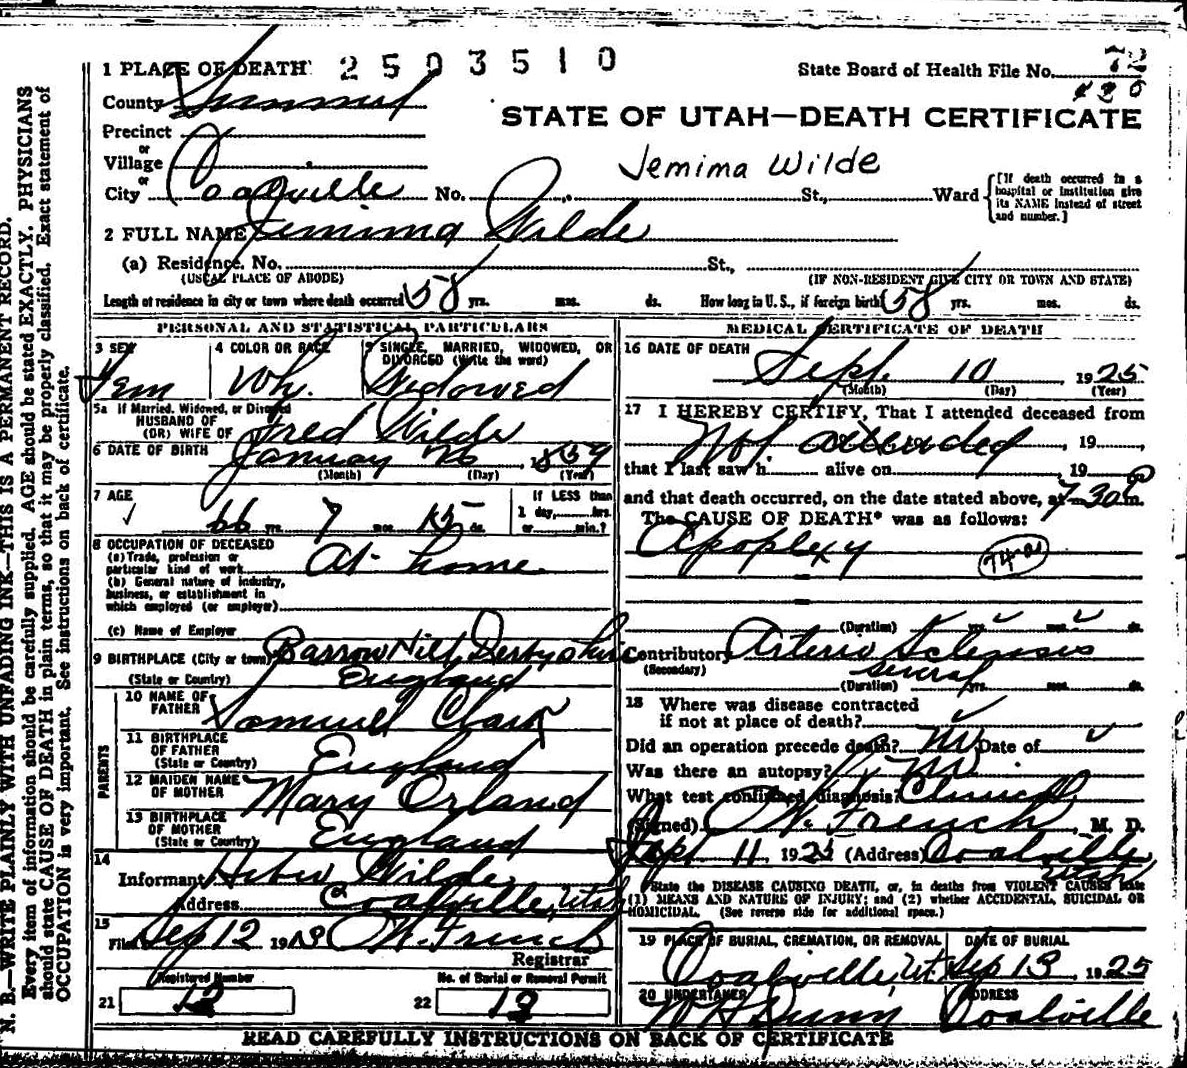 1 PLACE OF DEATH 2503510 State Board of Health File No. 72
County Summit 420
STATE OF UTAH—DEATH CERTIFICATE
Precinct
or
Village
Jemima Wilde
or
City Coalville No. St., Ward [If death occurred in a hospital or institution give its NAME instead of street and number.]
2 FULL NAME Jemima Wilde
(a) Residence. No. St.,
(USUAL PLACE OF ABODE) (IF NON-RESIDENT GIVE CITY OR TOWN AND STATE)
Length of residence in city or town where death occurred 58 yrs. mos. ds. How long in U. S., if foreign birth 58 yrs. mos. ds.
PERSONAL AND STATISTICAL PARTICULARS
3 SEX 4 COLOR OR RACE 5 SINGLE, MARRIED, WIDOWED, OR DIVORCED (Write the word)
Fem Wh. Widowed
5a If Married, Widowed, or Divorced
HUSBAND OF
(OR) WIFE OF Fred Wilde
6 DATE OF BIRTH January 26, 1859
(Month) (Day) (Year)
7 AGE If LESS than
66 yrs. 7 mos. 15 ds. 1 day, hrs.
or min.?
8 OCCUPATION OF DECEASED
(a) Trade, profession or
particular kind of work At home
(b) General nature of industry,
business, or establishment in
which employed (or employer)
(c) Name of Employer
9 BIRTHPLACE (City or town) Barrow Hill, Derbyshire
(State or Country) England
PARENTS
10 NAME OF
FATHER Samuel Clark
11 BIRTHPLACE
OF FATHER
(State or Country) England
12 MAIDEN NAME
OF MOTHER Mary Orland
13 BIRTHPLACE
OF MOTHER
(State or Country) England
14
Informant Heber Wilde
Address Coalville, Utah
15
Filed Sep 12 19 French
Registrar
Registered Number No. of Burial or Removal Permit
21 12 22 12
MEDICAL CERTIFICATE OF DEATH
16 DATE OF DEATH
Sept. 10 1925
(Month) (Day) (Year)
17 I HEREBY CERTIFY, That I attended deceased from
Not attended, 19
that I last saw h alive on 19
and that death occurred, on the date stated above, at 7-30 P m.
The CAUSE OF DEATH* was as follows:
Apoplexy 74-a
(Duration) yrs. mos. ds.
Contributory Arterio Sclerosis
(Secondary) several
(Duration) yrs. mos. ds.
18 Where was disease contracted
if not at place of death?
Did an operation precede death? No Date of
Was there an autopsy? No
What test confirmed diagnosis? Clinical
(Signed) French, M. D.
Sept 11 1925 (Address) Coalville
Utah
*State the DISEASE CAUSING DEATH, or, in deaths from VIOLENT CAUSES state
(1) MEANS AND NATURE OF INJURY; and (2) whether ACCIDENTAL, SUICIDAL OR
HOMICIDAL. (See reverse side for additional space.)
19 PLACE OF BURIAL, CREMATION, OR REMOVAL DATE OF BURIAL
Coalville, Ut. Sep 13, 1925
20 UNDERTAKER ADDRESS
Coalville
READ CAREFULLY INSTRUCTIONS ON BACK OF CERTIFICATE
N. B.—WRITE PLAINLY WITH UNFADING INK—THIS IS A PERMANENT RECORD.
Every item of information should be carefully supplied. AGE should be stated EXACTLY. PHYSICIANS
should state CAUSE OF DEATH in plain terms, so that it may be properly classified. Exact statement of
OCCUPATION is very important. See instructions on back of certificate.